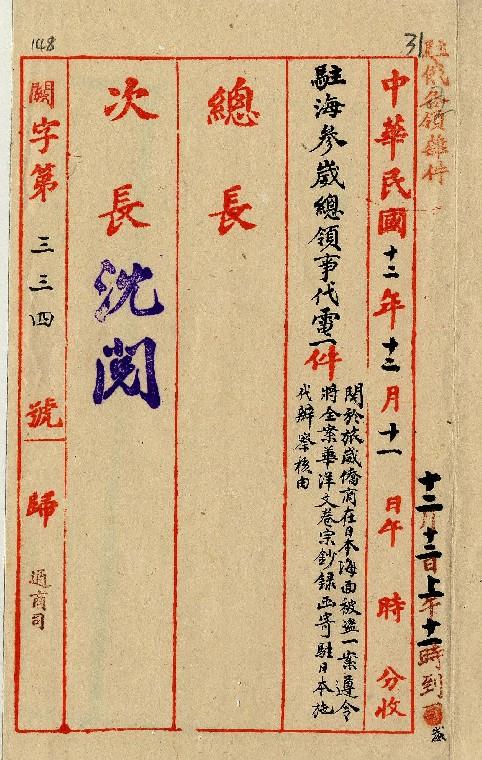 148
31
駐俄各領雜件
中華民國十二年十二月十一日午 時 分收
十二月十二日上午十一時到
駐海參崴總領事代電一件
關於旅崴僑商在日本海面被盜一案遵令
將全案華洋文卷宗鈔錄函寄駐日本施
代辦察核由
總長
次長
沈閱
關字第三三四號 歸 通商司